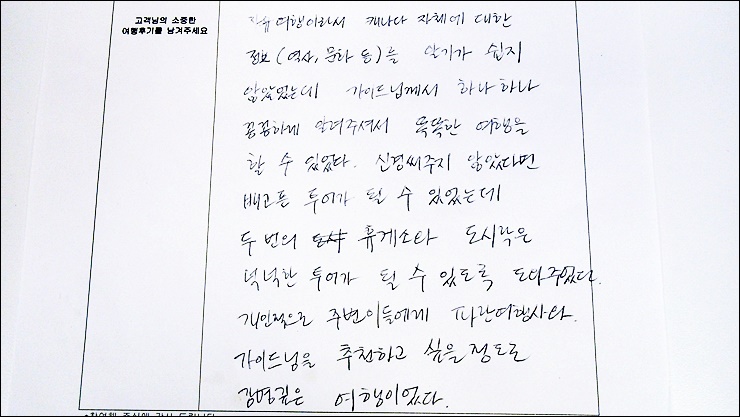 고객님의 소중한
여행후기를 남겨주세요
자유여행이라서 캐나다 자체에 대한
정보(역사, 문화 등)를 알기가 쉽지
않았었는데 가이드님께서 하나하나
꼼꼼하게 알려주셔서 똑똑한 여행을
할 수 있었다. 신경써주지 않았다면
배고픈 투어가 될 수 있었는데
두 번의 휴게소와 도시락은
넉넉한 투어가 될 수 있도록 도와주었다.
개인적으로 주변이들에게 파란여행사와
가이드님을 추천하고 싶을정도로
감명깊은 여행이었다.